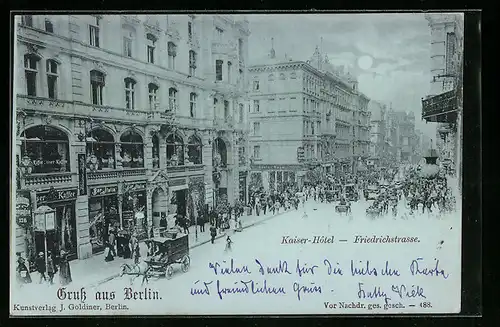 Kaffee
126
Kaiser-Hôtel — Friedrichstrasse.
Vielen Dank für Die liebe Karte
und freundlichen Gruss.
Gruß aus Berlin.
Kunstverlag J. Goldiner, Berlin.
Vor Nachdr. ges. gesch. — 488.